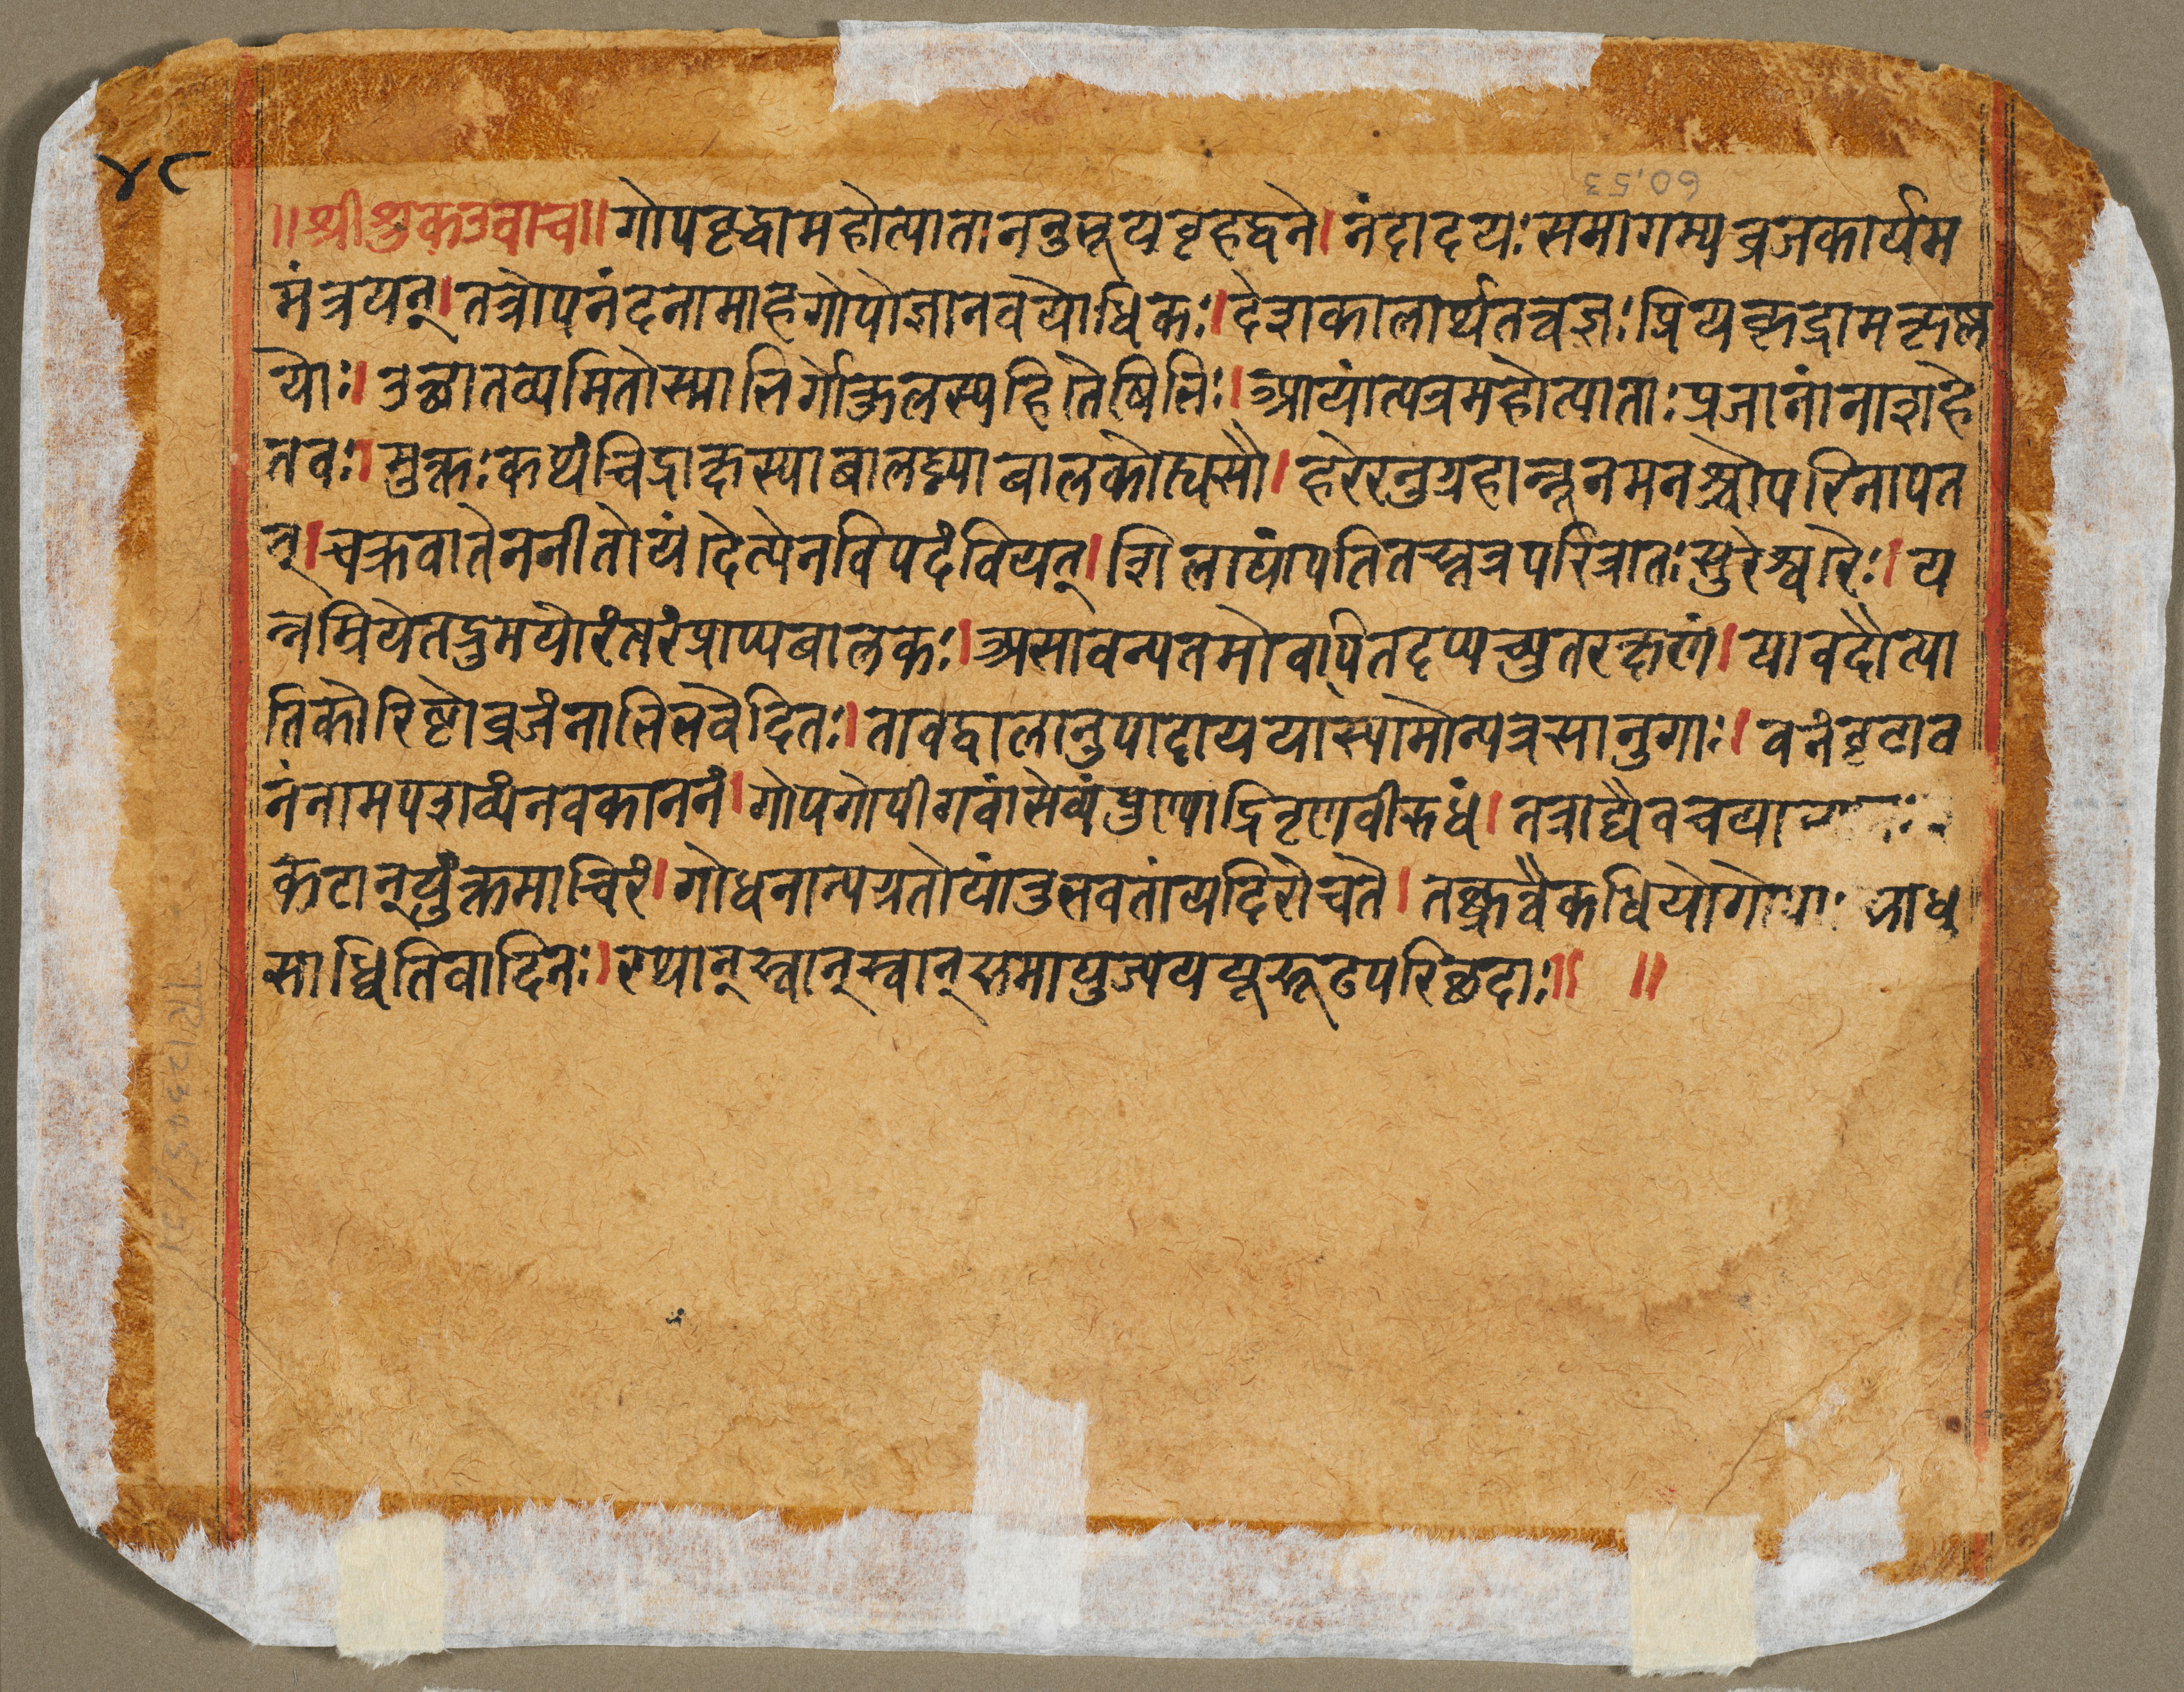 ४८
60.53
॥श्रीशुकउवाच॥गोपवृद्धामहोत्पाताननुभूयबृहद्वने।नंदादयःसमागम्यव्रजकार्यम
मंत्रयन्।तत्रोपनंदनामाहगोपोज्ञानवयोधिकः।देशकालार्थतत्वज्ञःप्रियकृद्रामकृष्ण
योः।उछातव्यमितोस्माभिर्गोकुलस्यहितैषिभिः।आयांत्यत्रमहोत्पाताःप्रजानांनाशहे
तवः।मुक्तःकथंचिद्राक्षस्याबालघ्न्याबालकोह्यसौ।हरेरनुग्रहान्नूनमनश्चोपरिनापत
त्।चक्रवातेननीतोयंदैत्येनविपदंवियत्।शिलायांपतितस्तत्रपरित्रातःसुरेश्वरैः।य
न्नम्रियेतद्रुमयोरंतरंप्राप्यबालकः।असावन्यतमोवापितदप्यच्युतरक्षणं।यावदौत्पा
तिकोरिष्टोव्रजंनाभिभवेदितः।तावद्बालानुपादाययास्यामोन्यत्रसानुगाः।वनंवृंदाव
नंनामपशव्यंनवकाननं।गोपगोपीगवांसेव्यंपुण्याद्रितृणवीरुधं।तत्राद्यैवचया
कटान्युंक्तमाचिरं।गोधनान्यग्रतोयांतुभवतांयदिरोचते।तछ्रुत्वैकधियोगोपाः साधु
साध्वितिवादिनः।रथान्स्वान्स्वान्समायुज्यययूरूढपरिछदाः॥ ॥